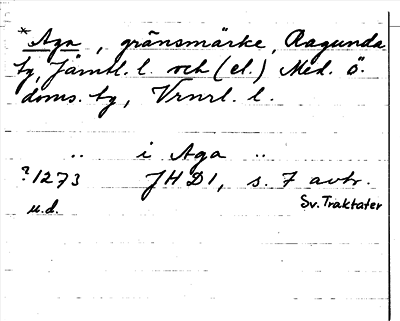 *Aga, gränsmärke, Ragunda
tg, Jämtl. l. och (el.) Med. ö.
doms. tg, Vrnrl. l.
.. i Aga ..
?1273 JHD1, s. 7 avtr.
u.d. Sv. Traktater